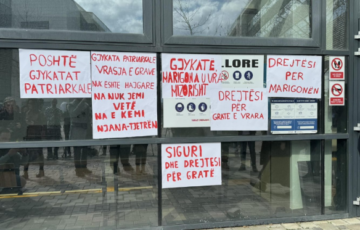 POSHTË
GJYKATAT
PATRIARKALE
GJYKATA PATRIARKALE
VRASJA E GRAVE
NA ËSHTË HALLGARE
NA NUK JEMI
VETË
NA E KEMI
NJANA-TJETREN
GJYKATË
MARIGONA U VRA
MIZORISHT
.LORE
DREJTËSI
PËR
GRATË E VRARA
DREJTESI
PËR
MARIGONËN
SIGURI
DHE DREJTËSI
PËR
GRATË